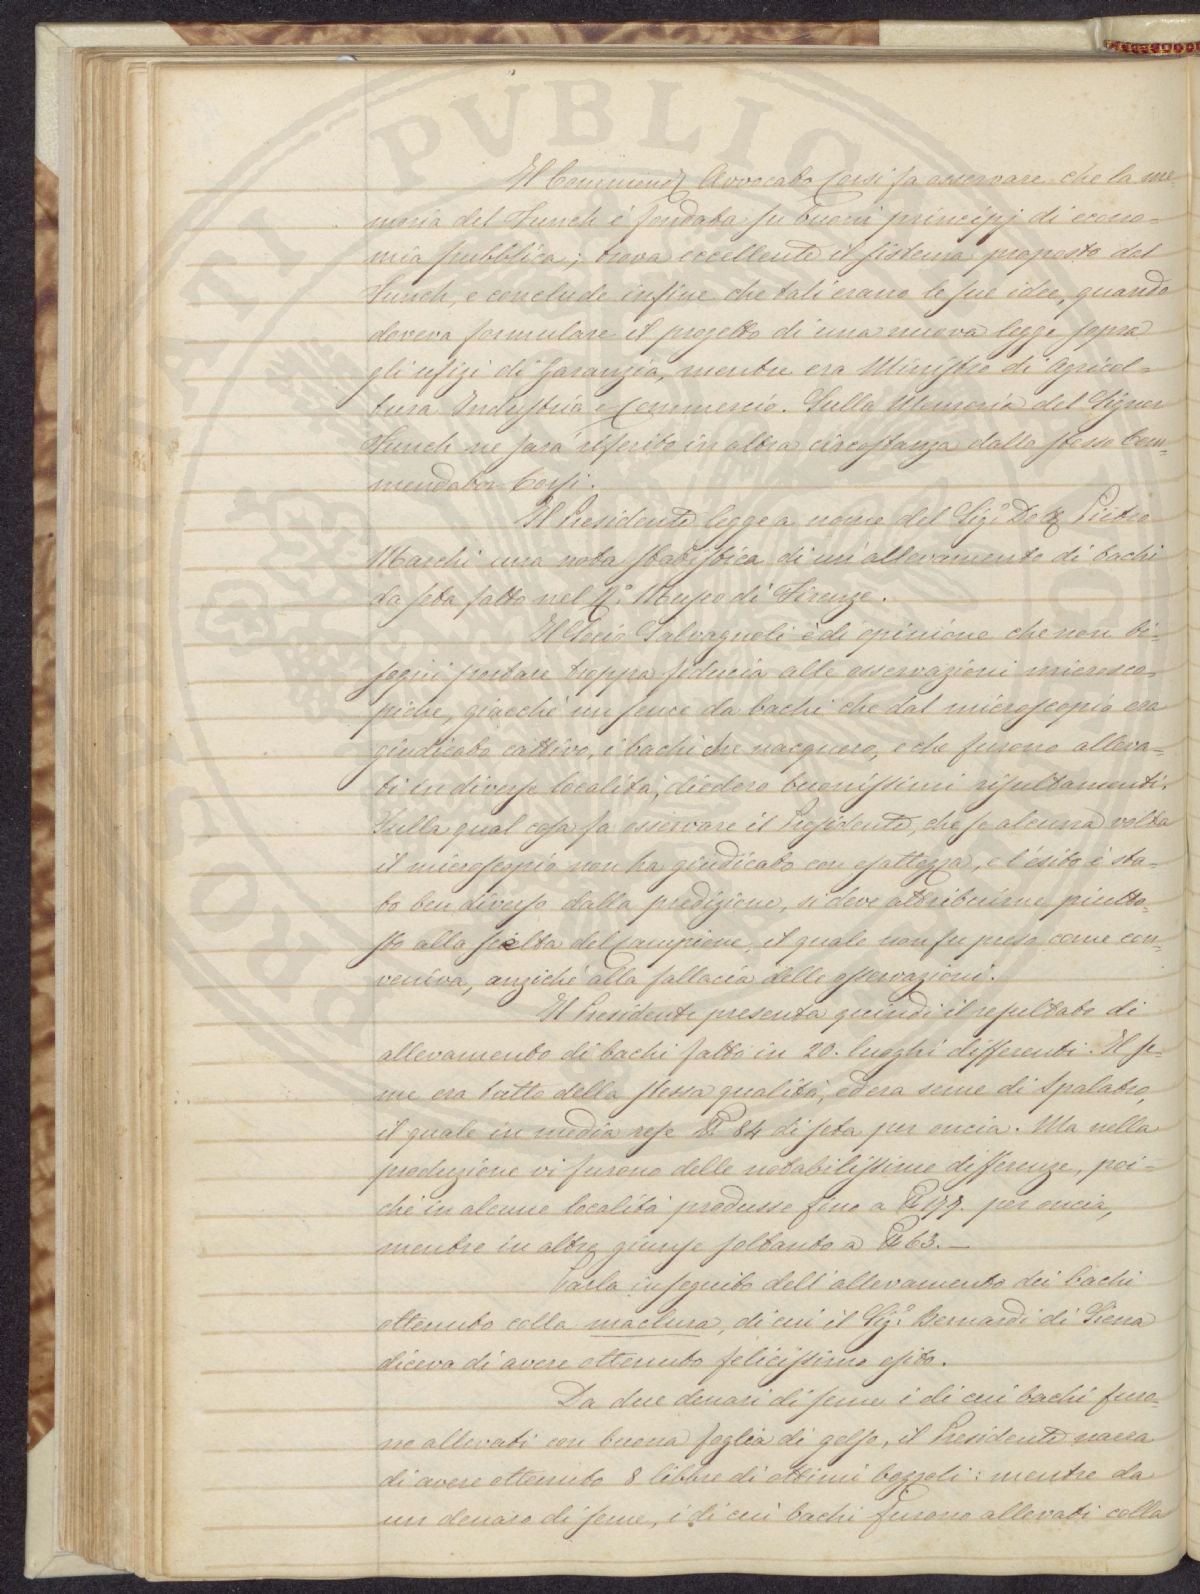 Il Commend. Avvocato Corsi fa osservare che la me-
moria del Funch è fondata su buoni principj di econo-
mia pubblica; trova eccellente il sistema proposto dal
Funch, e conclude infine che tali erano le sue idee, quando
doveva formulare il progetto di una nuova legge sopra
gli ufizi di Garanzia, mentre era Ministro di Agricol-
tura Industria e Commercio. Sulla Memoria del Signor
Funch ne sarà riferito in altra circostanza dallo stesso Com-
mendator Corsi.
Il Presidente legge a nome del Sig.r Dott. Pietro
Marchi una nota statistica di un' allevamento di bachi
da seta fatto nel R.° Museo di Firenze.
Il Socio Salvagnoli è di opinione che non bi-
sogni portare troppa fiducia alle osservazioni microsco-
piche, giacchè un seme da bachi che dal microscopio era
giudicato cattivo, i bachi che nacquero, e che furono alleva-
ti in diverse località, diedero buonissimi resultamenti.
Sulla qual cosa fa osservare il Presidente, che se alcuna volta
il microscopio non ha giudicato con esattezza, e l'esito è sta-
to ben diverso dalla predizione, si deve attribuirne piutto-
sto alla scelta del campione, il quale non fu preso come con-
veniva, anziché alla fallacia delle osservazioni.
Il Presidente presenta quindi il resultato di
allevamento di bachi fatto in 20. luoghi differenti. Il se-
me era tutto della stessa qualità, ed era seme di Spalatro,
il quale in media rese ℔ 84 di seta per oncia. Ma nella
produzione vi furono delle notabilissime differenze, poi-
chè in alcune località produsse fino a ℔ 177. per oncia,
mentre in altre giunse soltanto a ℔ 63.—
Parla in seguito dell'allevamento dei bachi
ottenuto colla maclura, di cui il Sig.r Bernardi di Siena
diceva di avere ottenuto felicissimo esito.
Da due denari di seme i di cui bachi furo-
no allevati con buona foglia di gelso, il Presidente narra
di avere ottenuto 8 libbre di ottimi bozzoli: mentre da
un denaro di seme, i di cui bachi furono allevati colla